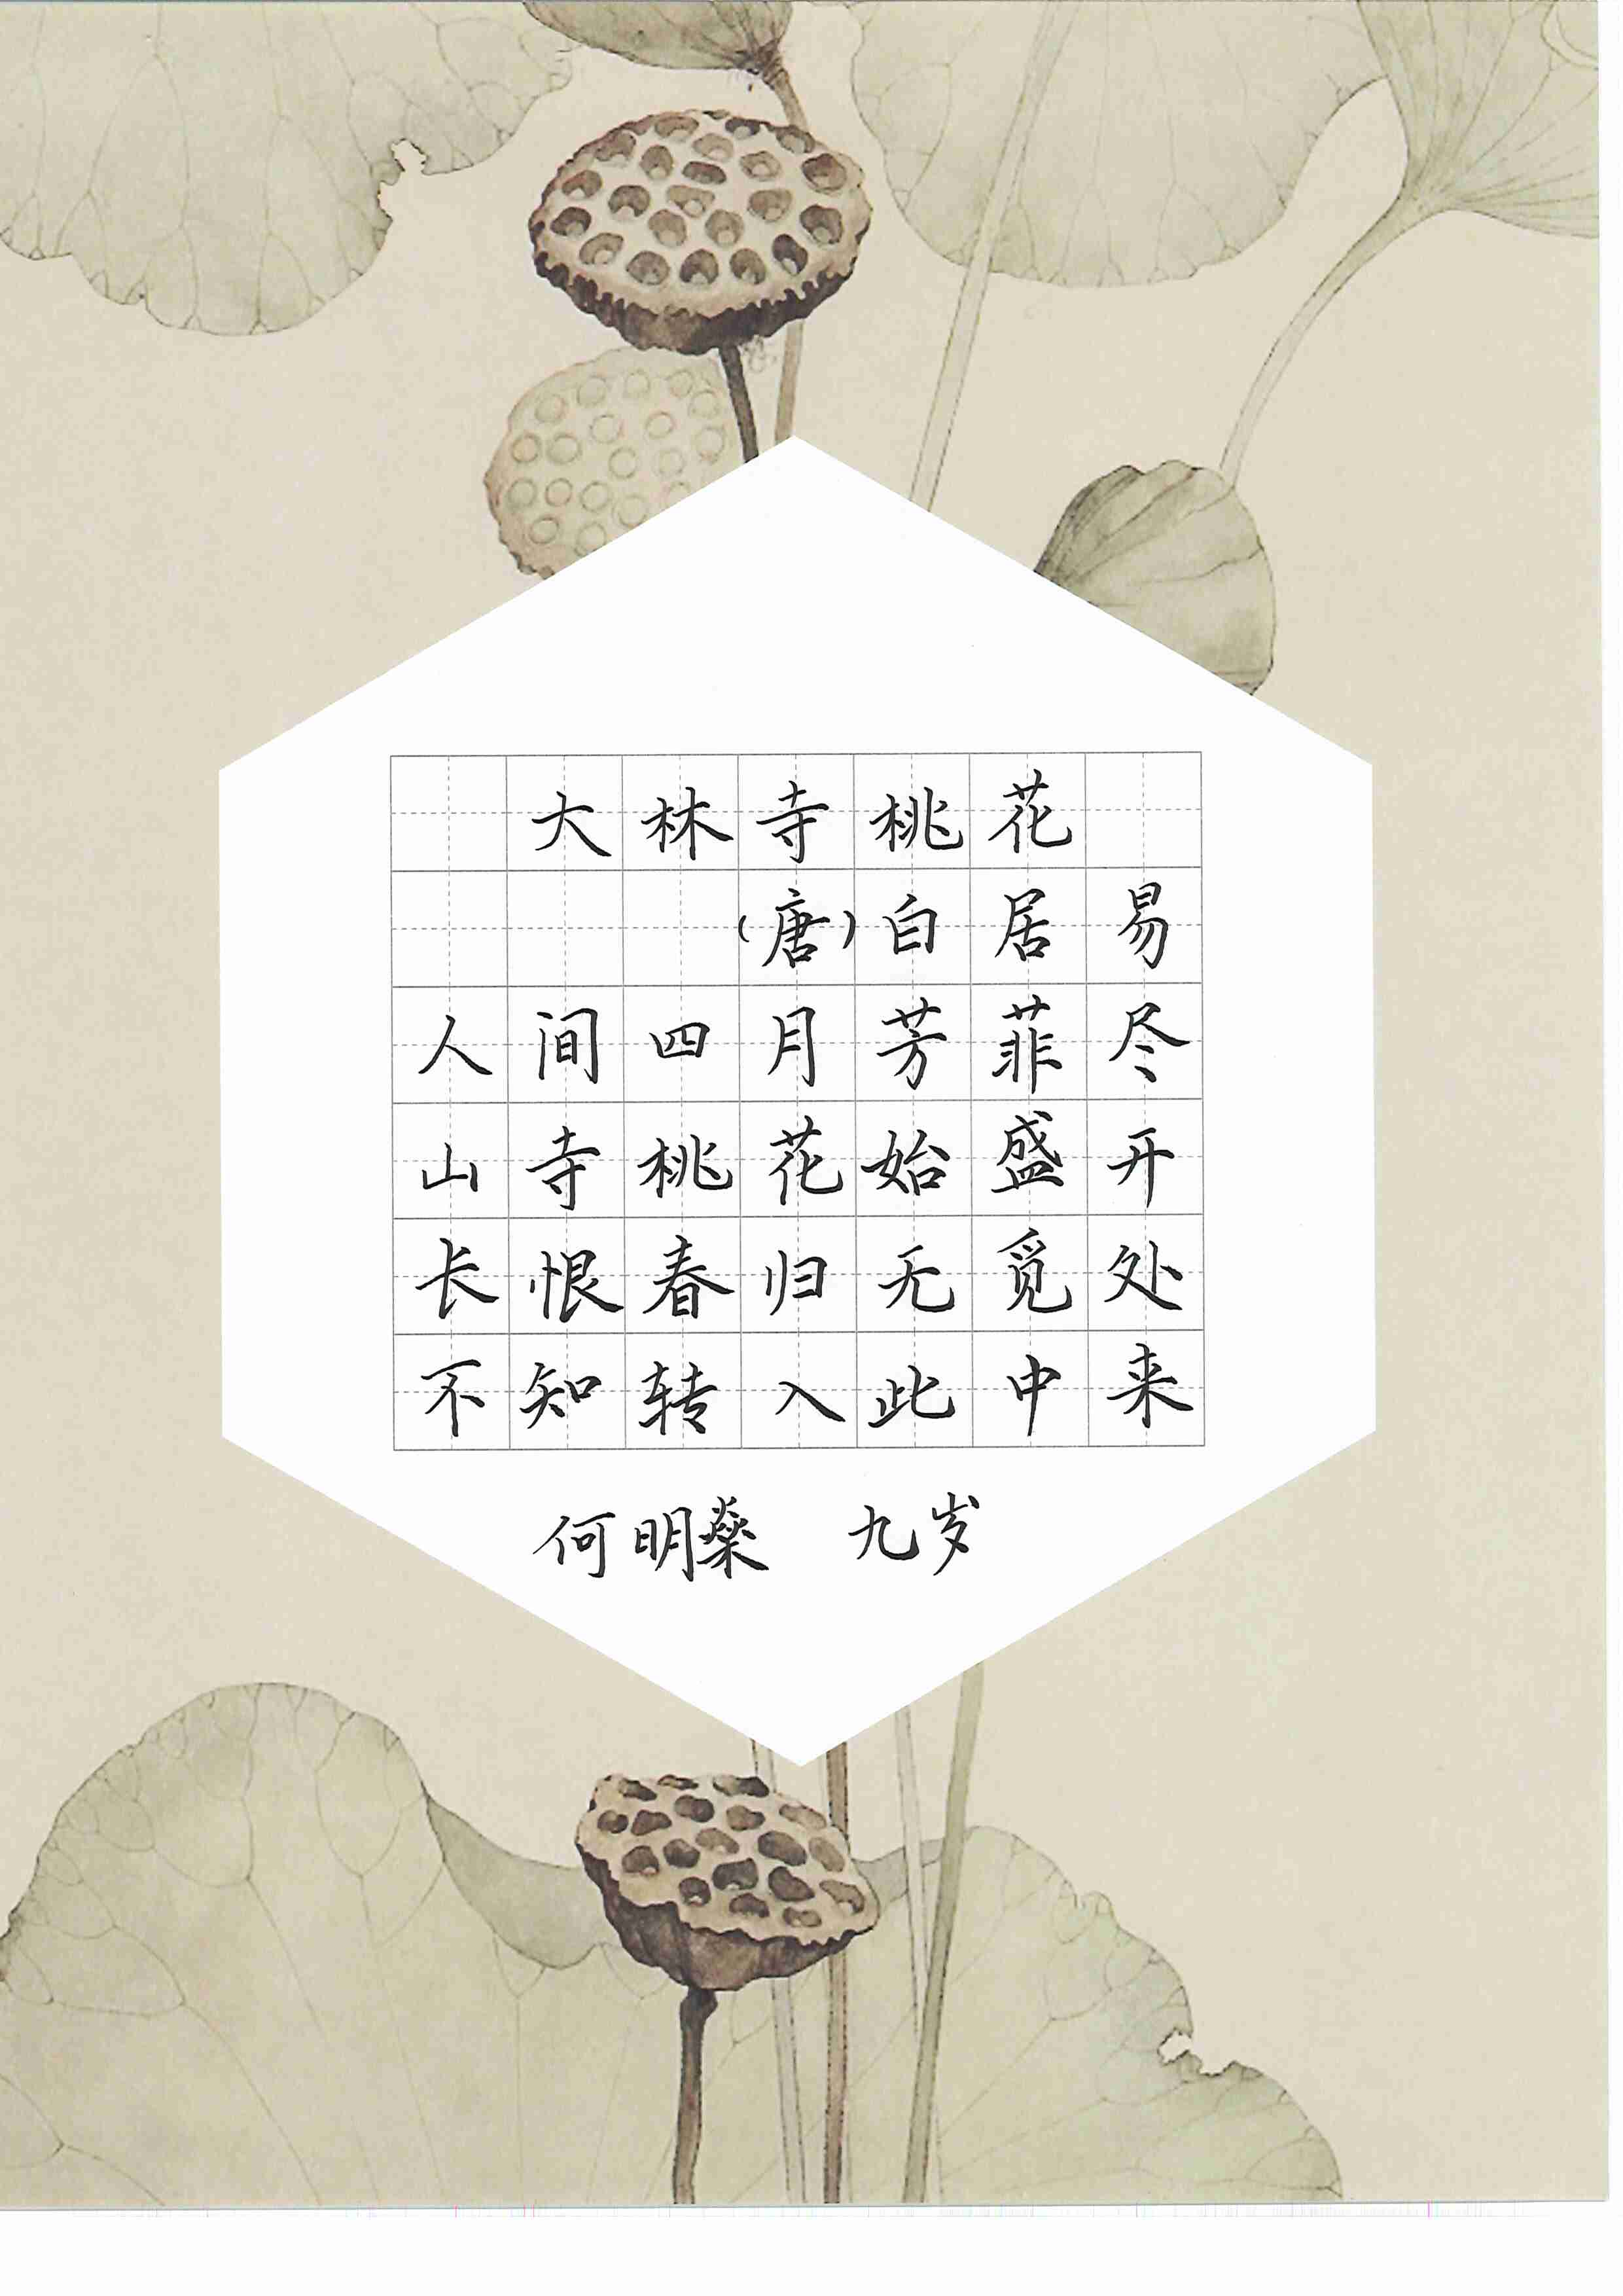 大林寺桃花
(唐)白居易
人间四月芳菲尽
山寺桃花始盛开
长恨春归无觅处
不知转入此中来
何明燊 九岁